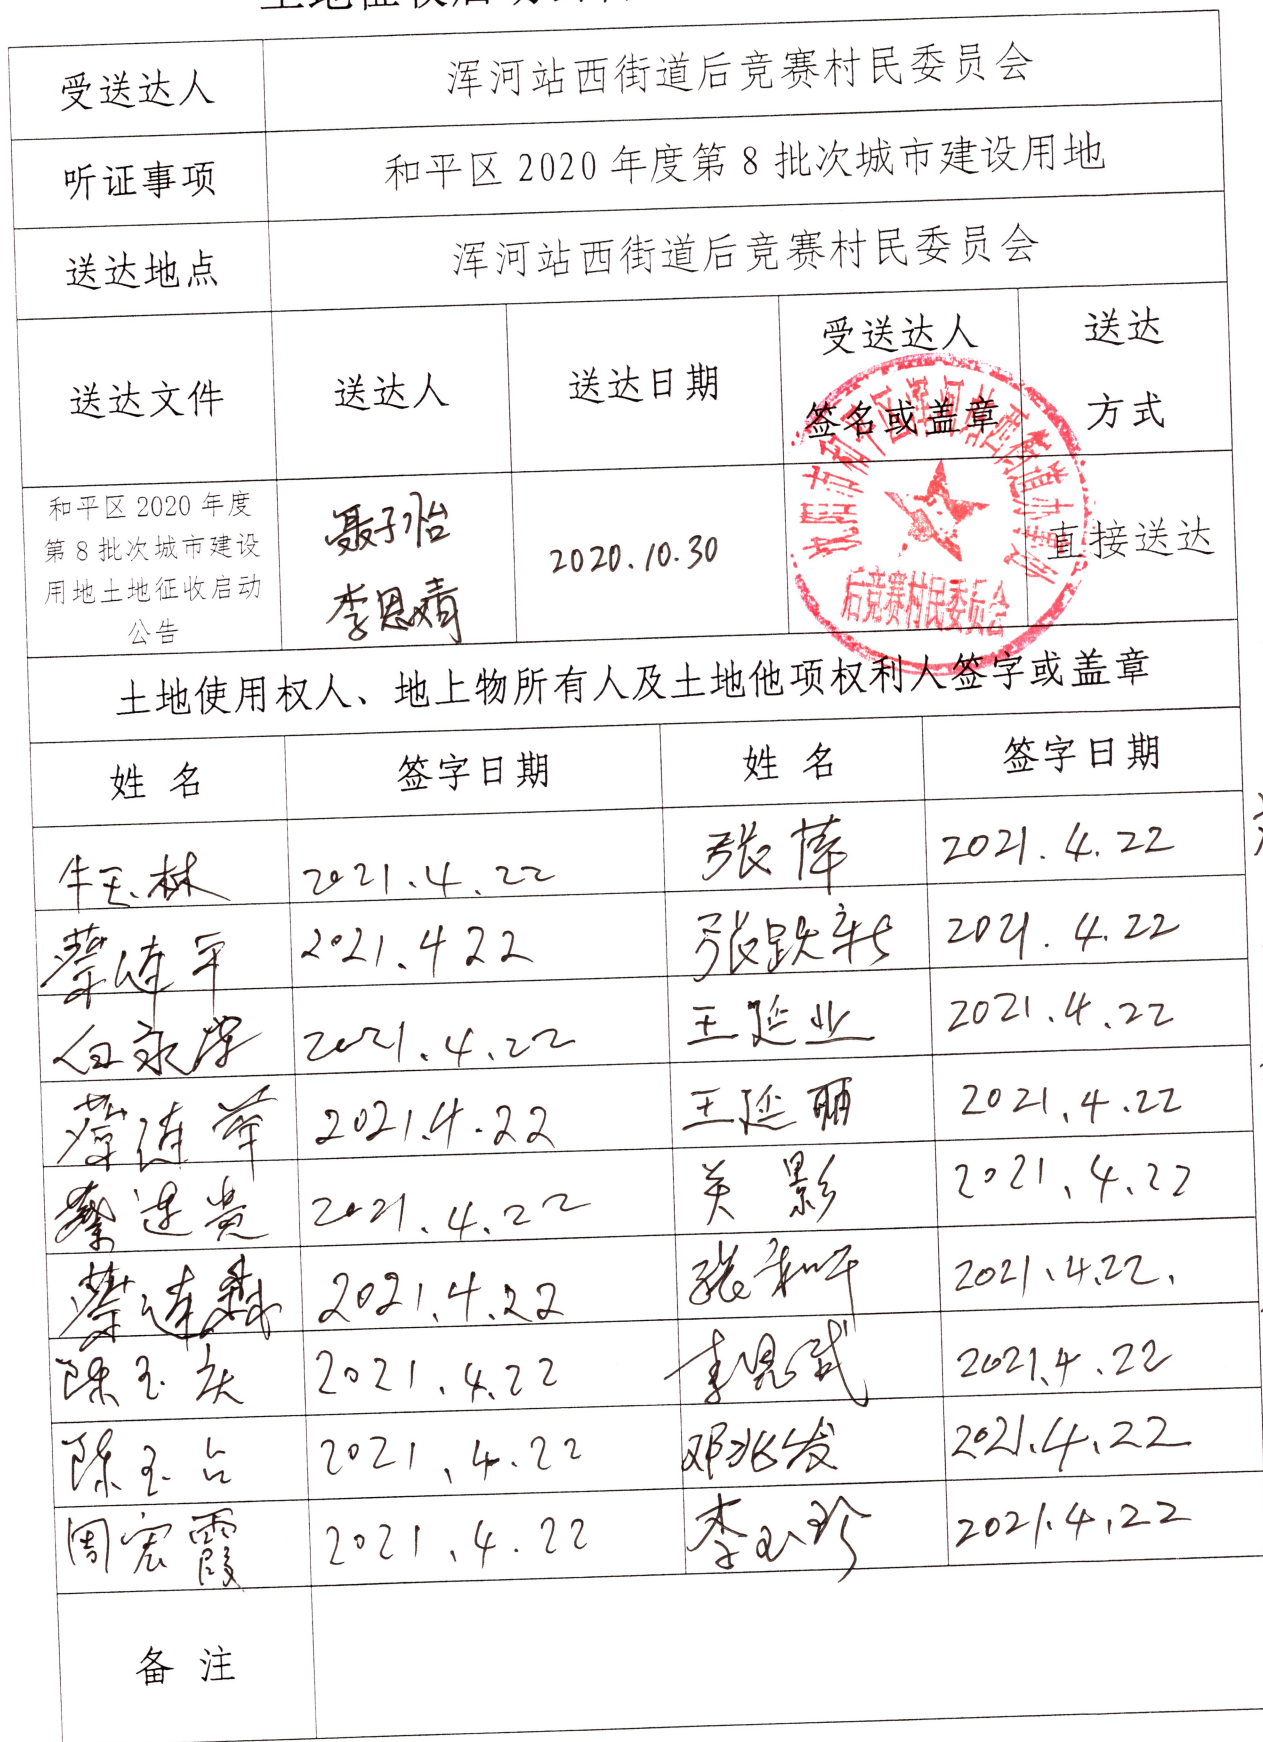 受送达人 浑河站西街道后竞赛村民委员会
听证事项 和平区 2020 年度第 8 批次城市建设用地
送达地点 浑河站西街道后竞赛村民委员会
送达文件 送达人 送达日期 受送达人 签名或盖章 送达 方式
和平区 2020 年度
第 8 批次城市建设
用地土地征收启动
公告
聂子怡
李恩婧
2020.10.30
后竞赛村民委员会
直接送达
土地使用权人、地上物所有人及土地他项权利人签字或盖章
姓 名 签字日期 姓 名 签字日期
牛玉林 2021.4.22 张萍 2021.4.22
蔡连平 2021.4 22 张跃新 2021.4.22
白永 2021.4.22 王延业 2021.4.22
蔡连华 2021.4.22 王延丽 2021.4.22
蔡连贵 2021.4.22 关影 2021.4.22
蔡连 2021.4.22 张和平 2021.4.22.
陈玉庆 2021.4.22 李恩武 2021.4.22
陈玉占 2021.4.22 邓兆发 2021.4.22
周宏霞 2021.4.22 李玉珍 2021.4.22
备 注